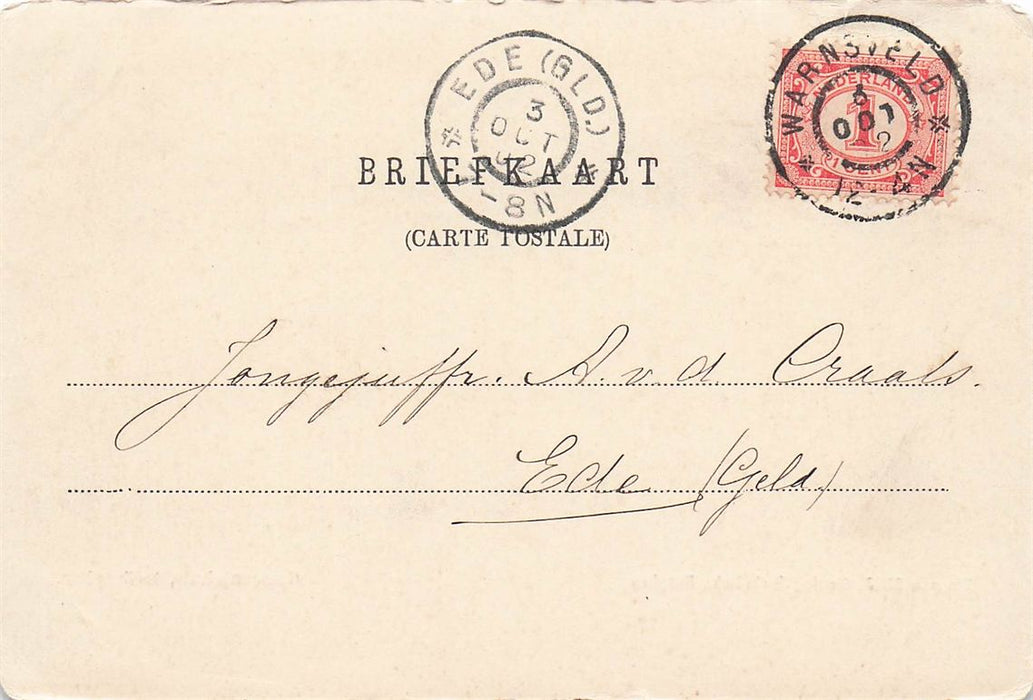 EDE (GLD.)
3
OCT
02
-8N
WARNSVELD
3
OCT
2
12-4N
NEDERLAND
1
1 CENT
BRIEFKAART
(CARTE POSTALE)
Jongejuffr. A. v. d. Craats.
Ede (Geld)